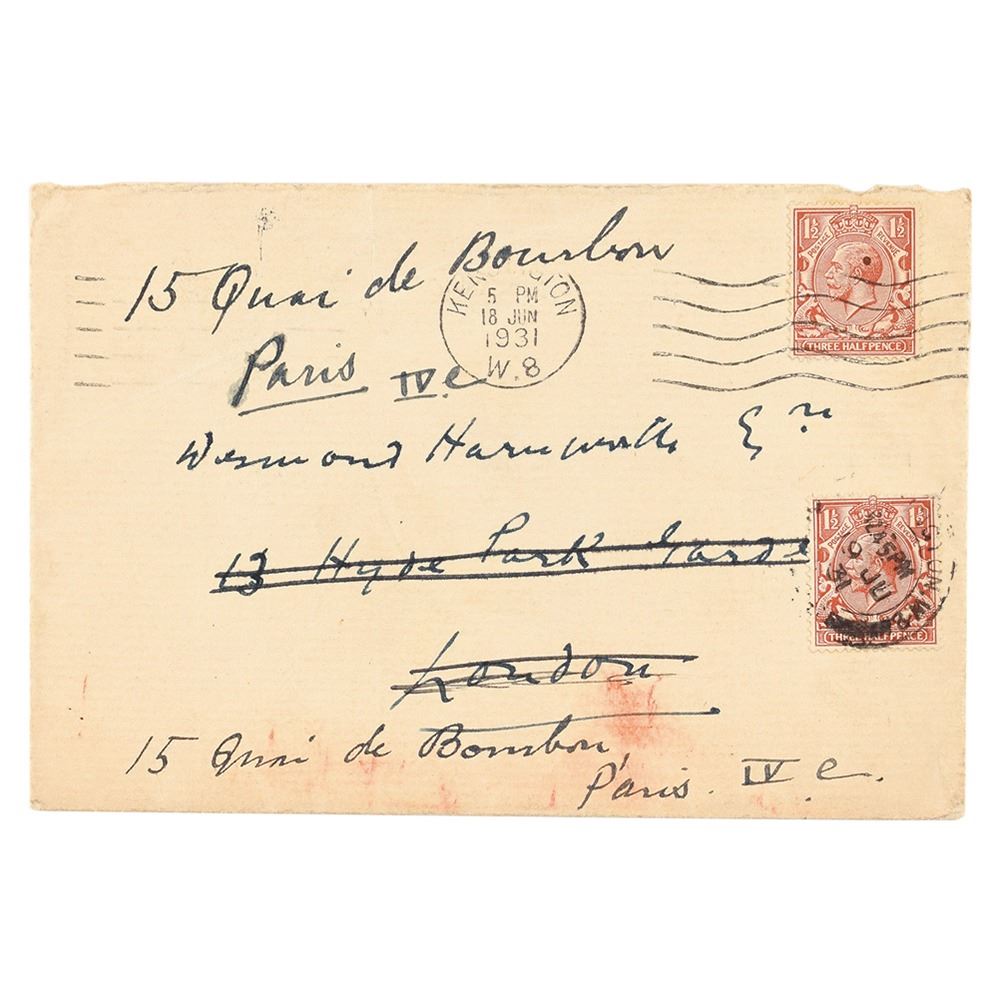 15 Quai de Bourbon
Paris IV e
KENSINGTON
5 PM
18 JUN
1931
W.8
1½ 1½
POSTAGE REVENUE
THREE HALFPENCE
Desmond Harmsworth Esqre
13 Hyde Park Garde
London
1½ 1½
POSTAGE REVENUE
12 45 PM
JU
31
W.8
THREE HALFPENCE
15 Quai de Bourbon,
Paris. IV e.